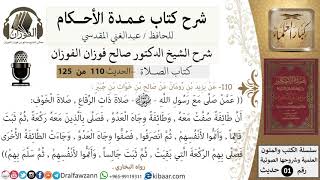 شرح كتاب عـمـدة الأحـكـام
للحافظ / عبدالغني المقدسي
شرح الشيخ الدكتور صالح فوزان الفوزان
كتاب الصلاة - الحديث 110 من 125
الفوزان
110- عَنْ يَزِيدَ بْنِ رُومَانَ عَنْ صَالِحِ بْنِ خَوَّاتِ بْنِ جُبَيْرٍ
((عَمَّنْ صَلَّى مَعَ رَسُولِ اللَّهِ - ﷺ - صَلَاةَ ذَاتِ الرِّقَاعِ، صَلَاةَ الْخَوْفِ:
أَنَّ طَائِفَةً صَفَّتْ مَعَهُ، وَطَائِفَةٌ وِجَاهَ الْعَدُوِّ، فَصَلَّى بِالَّذِينَ مَعَهُ رَكْعَةً، ثُمَّ ثَبَتَ
قَائِمًا، وَأَتَمُّوا لِأَنْفُسِهِمْ، ثُمَّ انْصَرَفُوا، فَصَفُّوا وِجَاهَ الْعَدُوِّ، وَجَاءَتِ الطَّائِفَةُ الْأُخْرَى
فَصَلَّى بِهِمُ الرَّكْعَةَ الَّتِي بَقِيَتْ، ثُمَّ ثَبَتَ جَالِسًا، وَأَتَمُّوا لِأَنْفُسِهِمْ، ثُمَّ سَلَّمَ بِهِمْ))
رواه البخاري
سلسلة الكتب والمتون
العلمية وشروحها الصوتية
رقم 01 حديث
Dralfawzann
kibaar.com